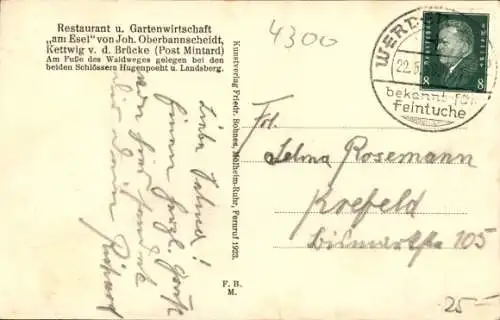 Restaurant u. Gartenwirtschaft
„am Esel" von Joh. Oberbannscheidt,
Kettwig v. d. Brücke (Post Mintard)
Am Fuße des Waldweges gelegen bei den
beiden Schlössern Hugenpoeht u. Landsberg.
4300
WERD
22.5
bekannt für
feintuche
Deutsches Reich
8 8
Kunstverlag Friedr. Bohnes, Mülheim-Ruhr, Fernruf 1923.
F. B.
M.
Liebe Selma!
Einen herzl. Gruß
von hier sendet
Dir Dein
Richard
Frl.
Selma Rosemann
Krefeld
Bismarckstr 105
25-